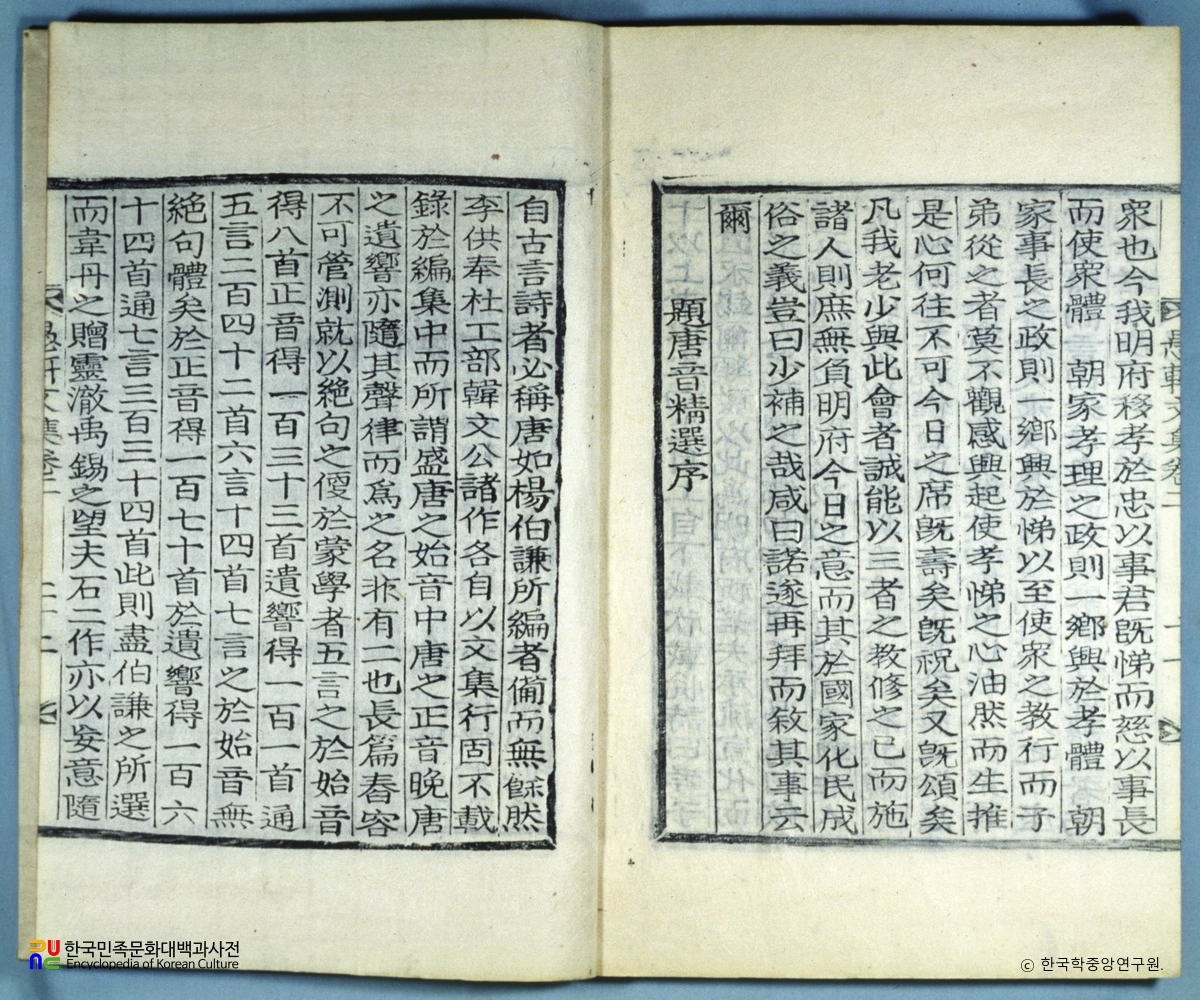 衆也今我明府移孝於忠以事君旣悌而慈以事長
而使衆體 朝家孝理之政則一鄉興於孝體 朝
家事長之政則一鄉興於悌以至使衆之教行而子
弟從之者莫不觀感興起使孝悌之心油然而生推
是心何往不可今日之席旣壽矣旣祝矣又旣頌矣
凡我老少與此會者誠能以三者之教修之已而施
諸人則庶無負明府今日之意而其於國家化民成
俗之義豈曰少補之哉咸曰諾遂再拜而敘其事云
爾
題唐音精選序
自古言詩者必稱唐如楊伯謙所編者備而無餘然
李供奉杜工部韓文公諸作各自以文集行固不載
錄於編集中而所謂盛唐之始音中唐之正音晚唐
之遺響亦隨其聲律而爲之名非有二也長篇舂容
不可管測就以絶句之便於蒙學者五言之於始音
得八首正音得一百三十三首遺響得一百一首通
五言二百四十二首六言十四首七言之於始音無
絶句體矣於正音得一百七十首於遺響得一百六
十四首通七言三百三十四首此則盡伯謙之所選
而韋丹之贈靈澈禹錫之望夫石二作亦以妄意隨
한국민족문화대백과사전
Encyclopedia of Korean Culture
ⓒ 한국학중앙연구원.